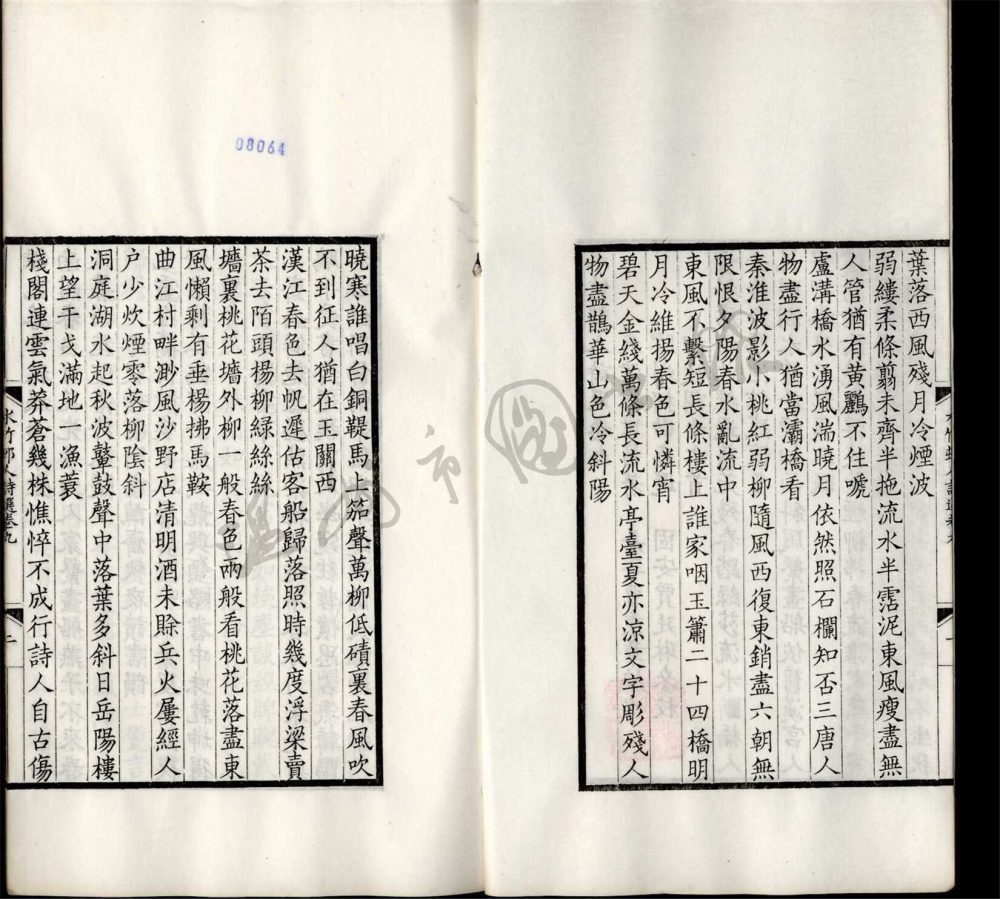 葉落西風殘月冷煙波
弱縷柔條翦未齊半抱流水半霑泥東風瘦盡無
人管猶有黃鸝不住嗁
盧溝橋水湧風湍曉月依然照石欄知否三唐人
物盡行人猶當灞橋看
秦淮波影小桃紅弱柳隨風西復東銷盡六朝無
限恨夕陽春水亂流中
東風不繫短長條樓上誰家咽玉簫二十四橋明
月冷維揚春色可憐宵
碧天金綫萬條長流水亭臺夏亦涼文字彫殘人
物盡鵲華山色冷斜陽
08064
曉寒誰唱白銅鞮馬上笳聲萬柳低磧裏春風吹
不到征人猶在玉關西
漢江春色去帆遲估客船歸落照時幾度浮梁賣
茶去陌頭楊柳綠絲絲
墻裏桃花墻外柳一般春色兩般看桃花落盡東
風懶剩有垂楊拂馬鞍
曲江村畔渺風沙野店清明酒未賒兵火屢經人
户少炊煙零落柳陰斜
洞庭湖水起秋波鼙鼓聲中落葉多斜日岳陽樓
上望干戈滿地一漁蓑
棧閣連雲氣莽蒼幾株憔悴不成行詩人自古傷
水竹邨人詩選卷九
二